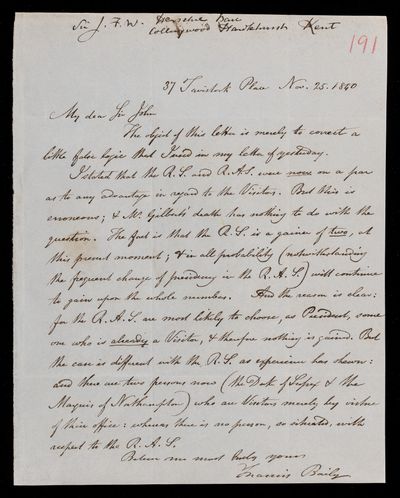 Sir J. F. W. Herschel Bart
Collingwood Hawkhurst Kent
191
37 Tavistock Place Nov. 25. 1840
My dear Sir John
The object of this letter is merely to correct a
little false logic that I used in my letter of yesterday.
I stated that the R.S. and R.A.S. were now on a par
as to any advantage in regard to the Visitors. But this is
erroneous; & Mr Gilbert's death has nothing to do with the
question. The fact is that the R.S. is a gainer of two, at
this present moment; & in all probability (notwithstanding
the frequent change of presidency in the R.A.S.) will continue
to gain upon the whole number. And the reason is clear:
for the R.A.S. are most likely to choose, as President, some
one who is already a Visitor, & therefore nothing is gained. But
the case is different with the R.S. as experience has shewn:
and there are two persons now (the Duke of Sussex & the
Marquis of Northampton) who are Visitors merely by virtue
of their office: whereas there is no person, so situated, with
respect to the R.A.S.
Believe me most truly yours
Francis Baily